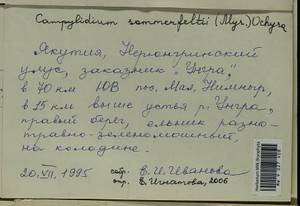 Campylidium sommerfeltii (Myr.) Ochyra
Якутия, Нерюнгринский
улус, заказник "Унгра",
в 70 км ЮВ пос. Мал. Нимныр,
в 15 км выше устья р. Унгра,
правый берег, ельник разно-
травно-зеленомошный,
на колодине.
20.VII.1995 собр. Е.И. Иванова
опр. Е. Игнатова, 2006